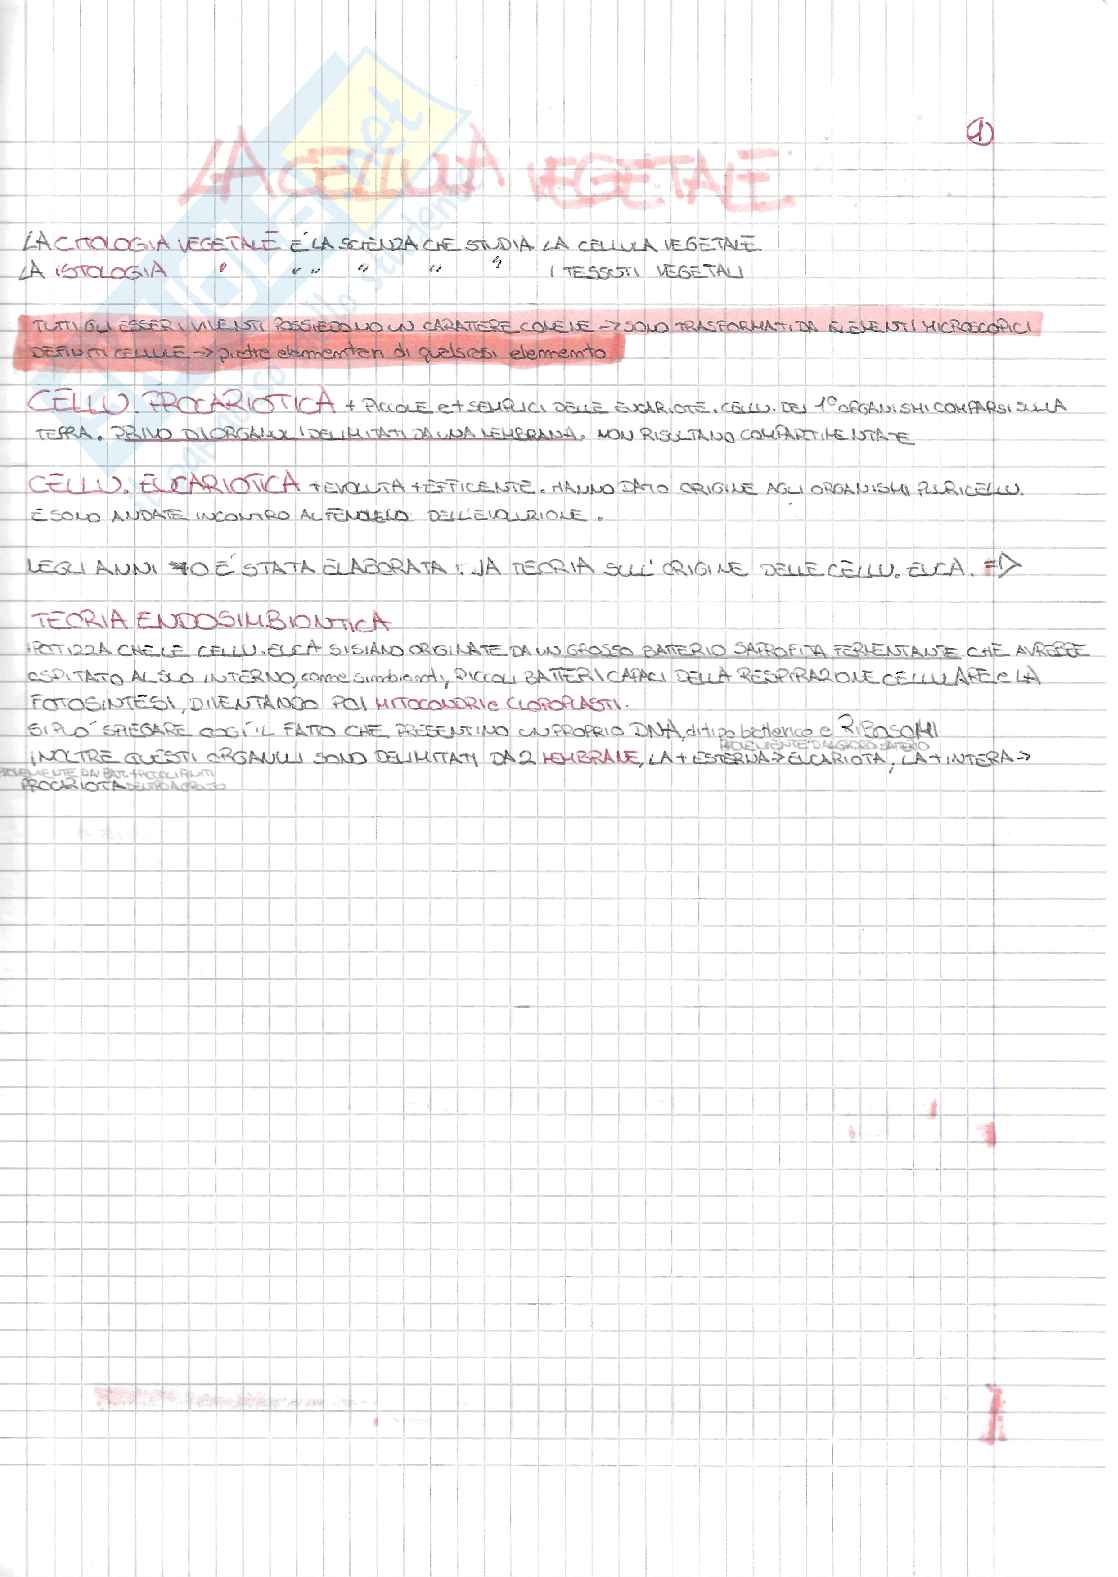 1
LA CELLULA VEGETALE
LA CITOLOGIA VEGETALE È LA SCIENZA CHE STUDIA LA CELLULA VEGETALE
LA ISTOLOGIA " " " " " " I TESSUTI VEGETALI
TUTTI GLI ESSERI VIVENTI POSSIEDONO UN CARATTERE COMUNE → SONO TRASFORMATI DA ELEMENTI MICROSCOPICI
DEFINITI CELLULE → pietre elementari di qualsiasi elemento
CELLU. PROCARIOTICA + PICCOLE e + SEMPLICI DELLE EUCARIOTE. CELLU. DEI 1° ORGANISMI COMPARSI SULLA
TERRA. PRIVO DI ORGANULI DELIMITATI DA UNA MEMBRANA. NON RISULTANO COMPARTIMENTATE
CELLU. EUCARIOTICA + EVOLUTA + EFFICENTE. HANNO DATO ORIGINE AGLI ORGANISMI PLURICELLU.
E SONO ANDATE INCONTRO AL FENOMENO DELL'EVOLUZIONE.
NEGLI ANNI 70 E' STATA ELABORATA LA TEORIA SULL'ORIGINE DELLE CELLU. EUCA. =>
TEORIA ENDOSIMBIONTICA
IPOTIZZA CHE LE CELLU. EUCA SI SIANO ORIGINATE DA UN GROSSO BATTERIO SAPROFITA FERMENTANTE CHE AVREBBE
OSPITATO AL SUO INTERNO, come simbionti, PICCOLI BATTERI CAPACI DELLA RESPIRAZIONE CELLULARE e LA
FOTOSINTESI, DIVENTANDO POI MITOCONDRI e CLOROPLASTI.
SI PUO' SPIEGARE COSI' IL FATTO CHE PRESENTINO UN PROPRIO DNA, di tipo batterico e RIBOSOMI
INOLTRE QUESTI ORGANULI SONO DELIMITATI DA 2 MEMBRANE, LA + ESTERNA → EUCARIOTA, LA + INTERA →
PROCARIOTA